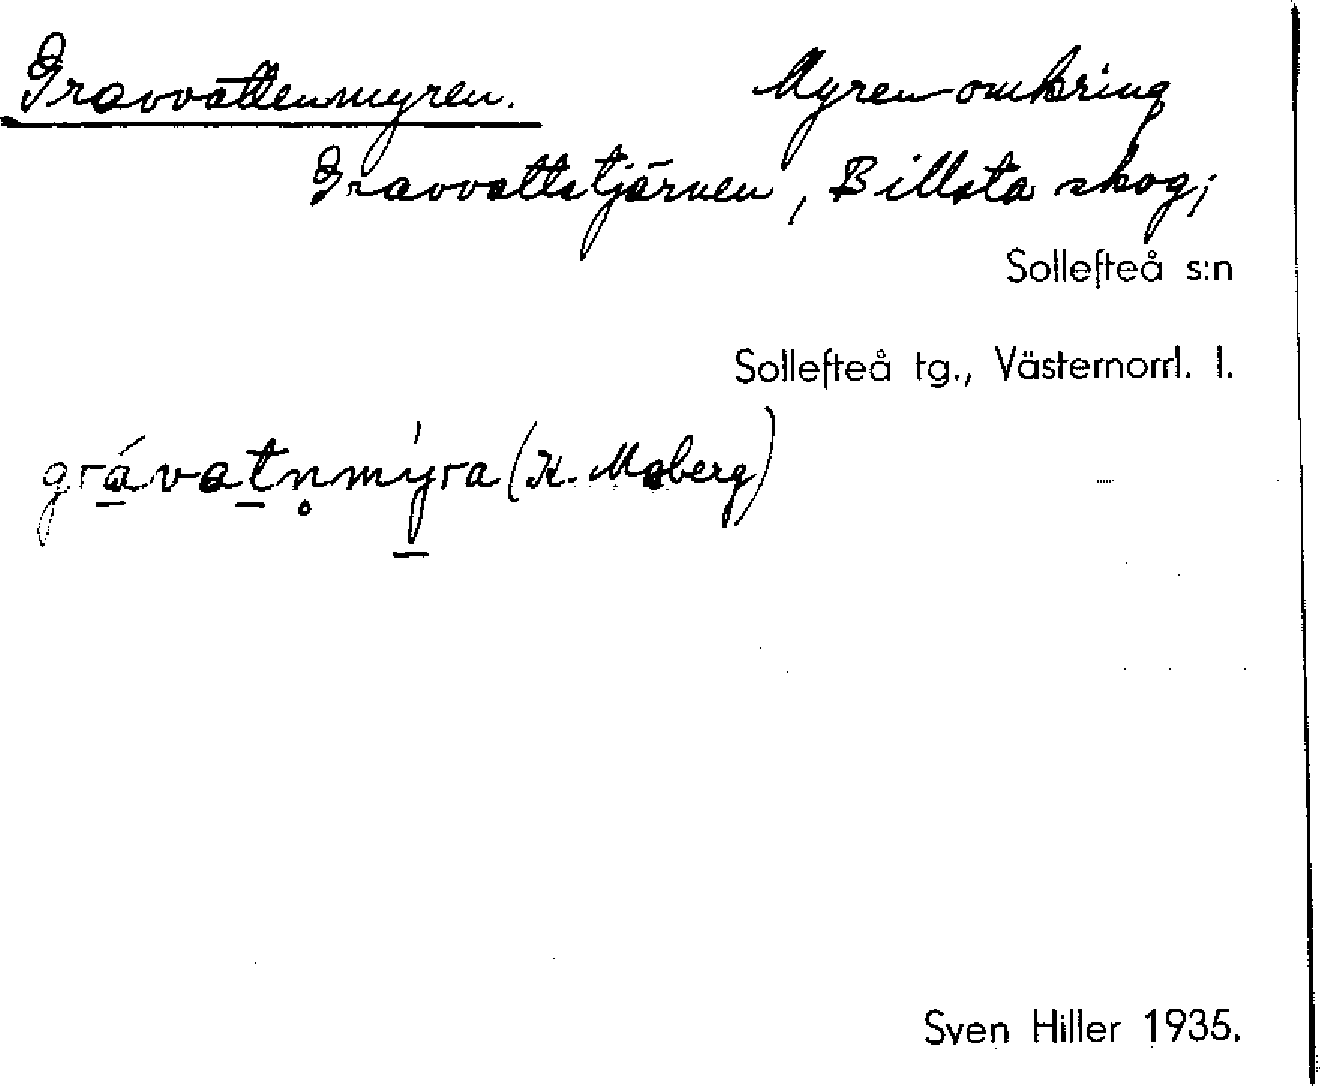 Gravvattenmyren. Myren omkring
Gravvattstjärnen, Billsta skog;
Sollefteå s:n
Sollefteå tg., Västernorrl. l.
grávatn̥mýra (K. Moberg)
Sven Hiller 1935.